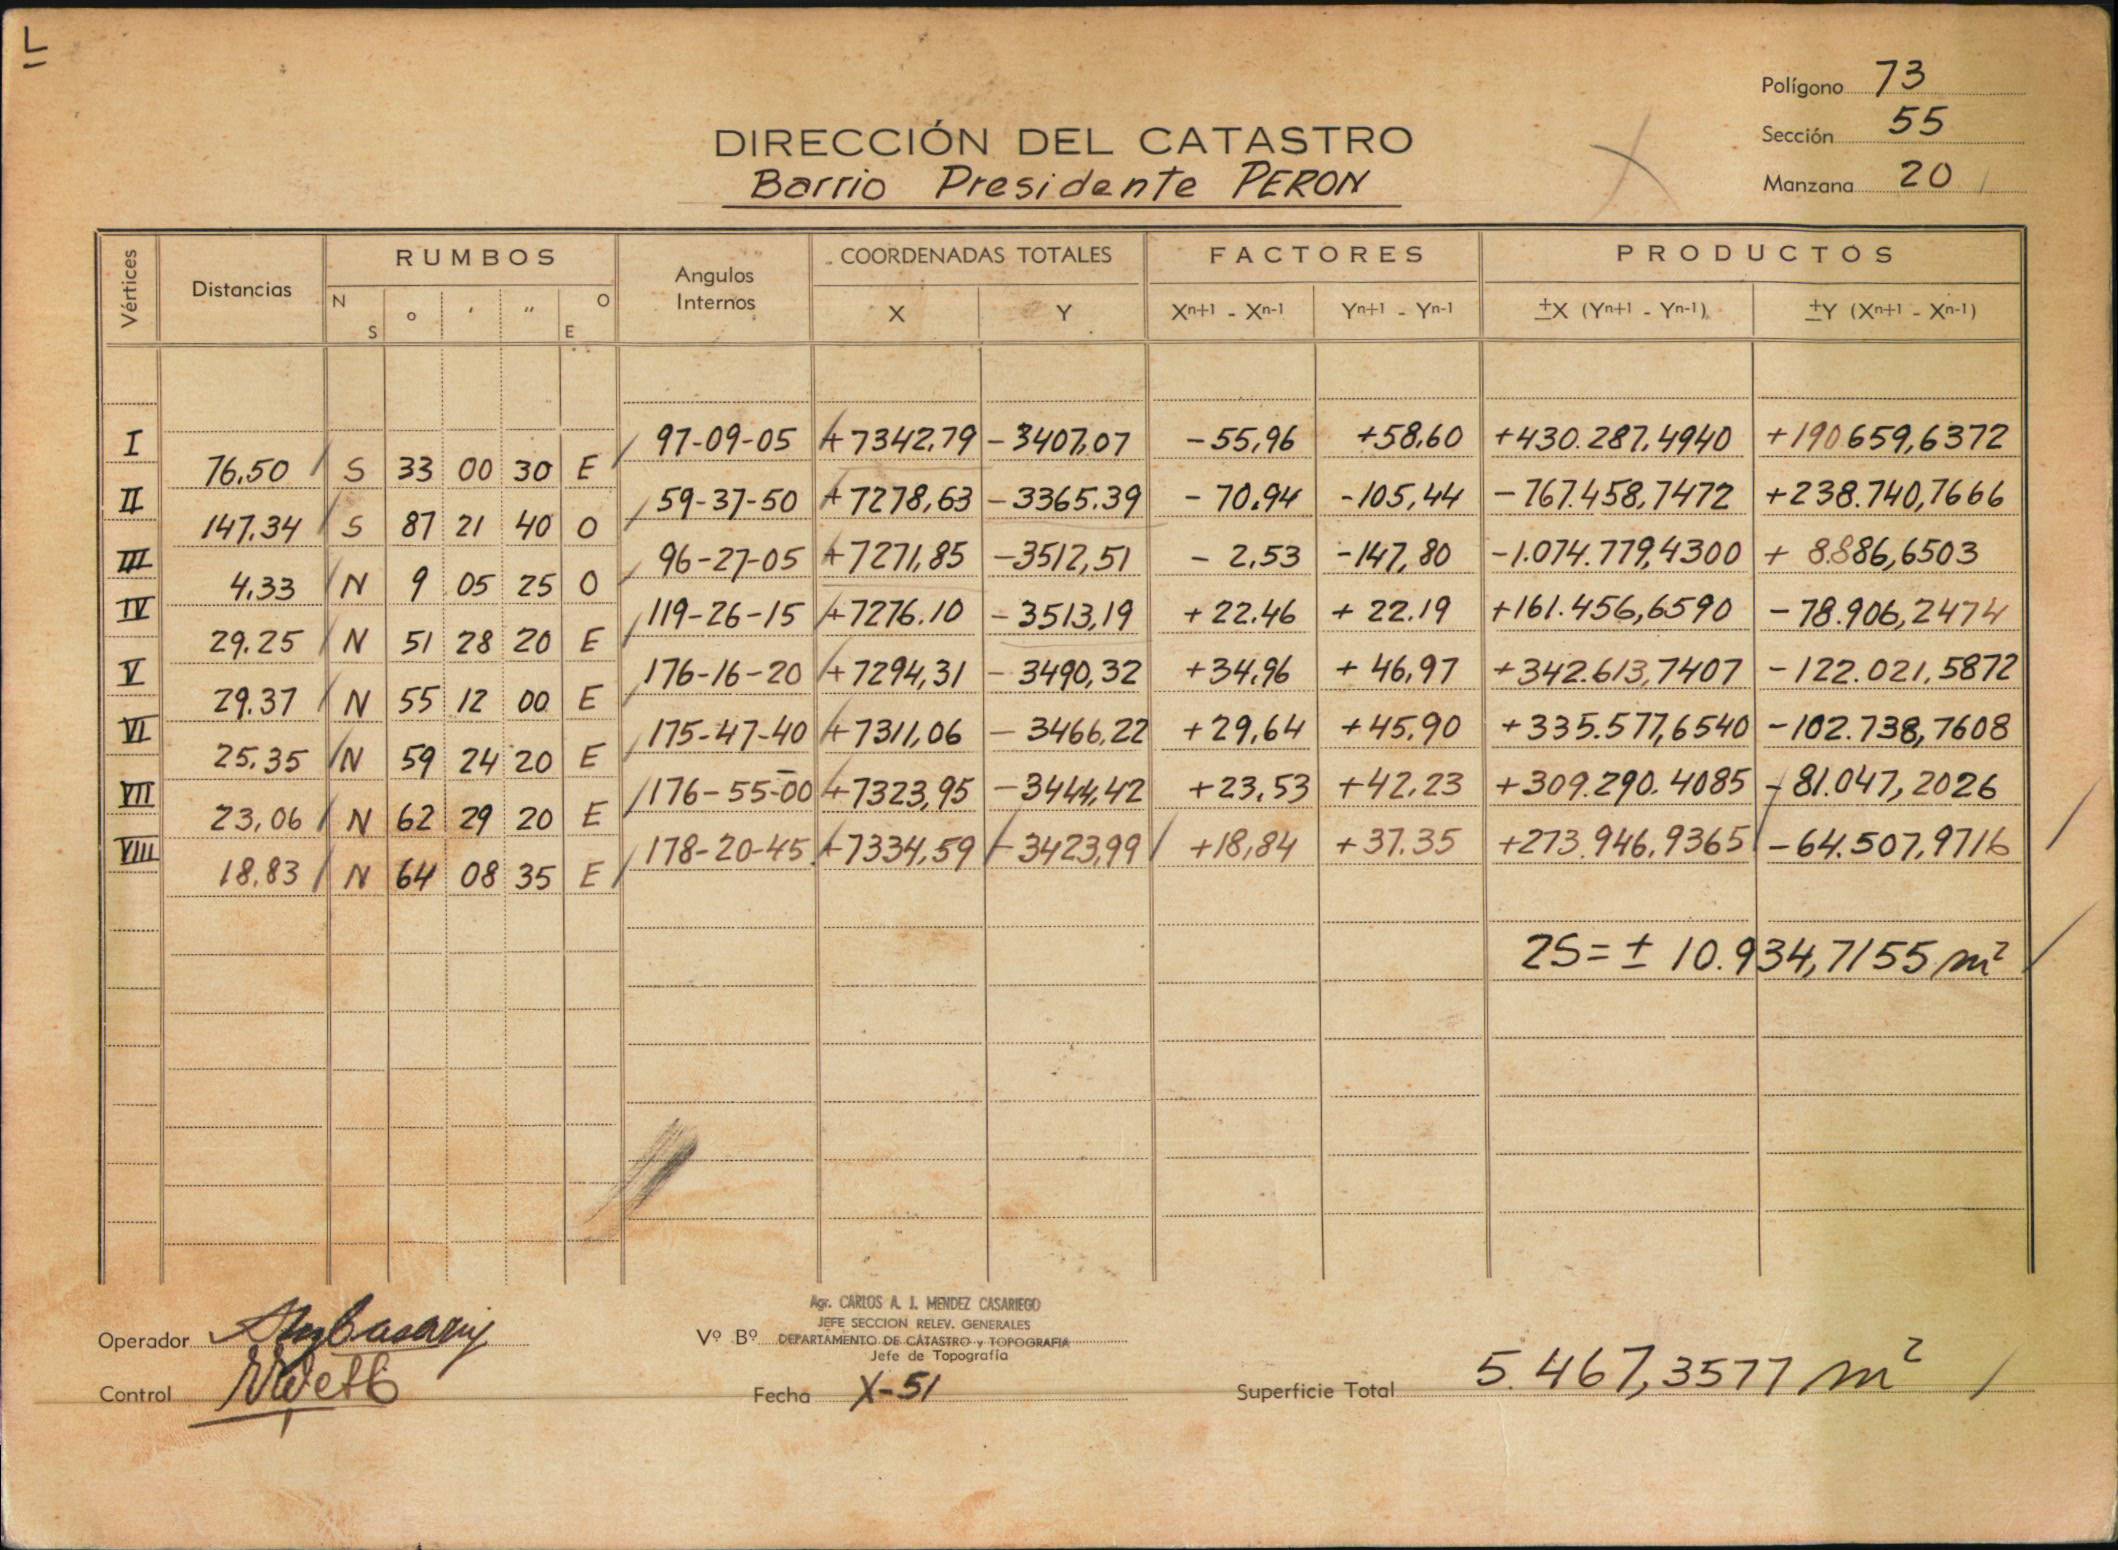 L
Polígono 73
Sección 55
Manzana 20
DIRECCIÓN DEL CATASTRO
Barrio Presidente PERON
Vértices Distancias RUMBOS Angulos Internos COORDENADAS TOTALES FACTORES PRODUCTOS
N S o ' " O E X Y Xn+1 - Xn-1 Yn+1 - Yn-1 ±X (Yn+1 - Yn-1) ±Y (Xn+1 - Xn-1)
I 97-09-05 +7342,79 -3407,07 -55,96 +58,60 +430.287,4940 +190659,6372
76,50 S 33 00 30 E
II 59-37-50 +7278,63 -3365.39 -70.94 -105,44 -767.458,7472 +238.740,7666
147,34 S 87 21 40 O
III 96-27-05 +7271,85 -3512,51 -2,53 -147,80 -1.074.779,4300 +8.886,6503
4,33 N 9 05 25 O
IV 119-26-15 +7276.10 -3513,19 +22.46 +22.19 +161.456,6590 -78.906,2474
29.25 N 51 28 20 E
V 176-16-20 +7294,31 -3490,32 +34,96 +46,97 +342.613,7407 -122.021,5872
29.37 N 55 12 00 E
VI 175-47-40 +7311,06 -3466,22 +29,64 +45,90 +335.577,6540 -102.738,7608
25,35 N 59 24 20 E
VII 176-55-00 +7323,95 -3444,42 +23,53 +42,23 +309.290.4085 -81.047,2026
23,06 N 62 29 20 E
VIII 178-20-45 +7334,59 -3423,99 +18,84 +37.35 +273.946,9365 -64.507,9716
18,83 N 64 08 35 E
2S = ± 10.934,7155 m²
Agr. CARLOS A. J. MENDEZ CASARIEGO
JEFE SECCION RELEV. GENERALES
Operador Vº Bº DEPARTAMENTO DE CATASTRO y TOPOGRAFIA
Jefe de Topografía
Control Fecha X-51 Superficie Total 5.467,3577 m²